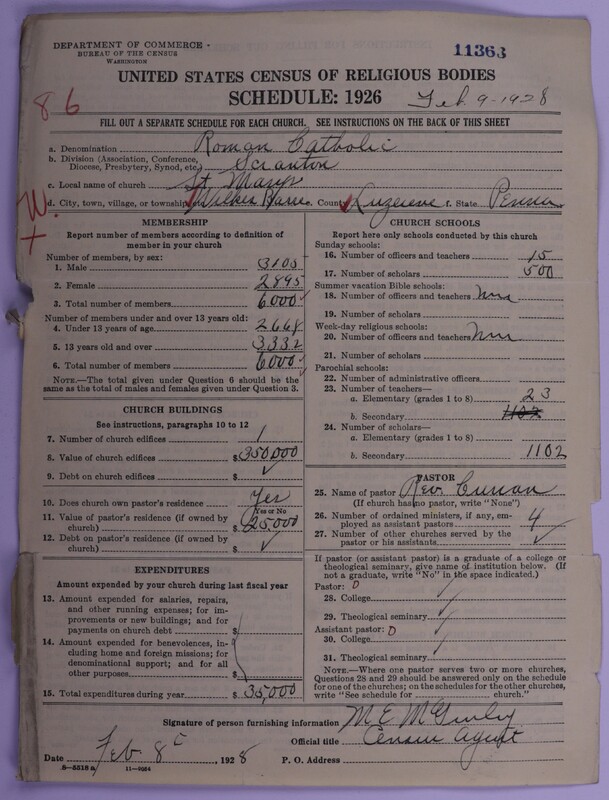 DEPARTMENT OF COMMERCE
BUREAU OF THE CENSUS
WASHINGTON
11363
UNITED STATES CENSUS OF RELIGIOUS BODIES
SCHEDULE: 1926
Feb. 9-1928
86
FILL OUT A SEPARATE SCHEDULE FOR EACH CHURCH. SEE INSTRUCTIONS ON THE BACK OF THIS SHEET
a. Denomination Roman Catholic
b. Division (Association, Conference, Diocese, Presbytery, Synod, etc.) Scranton
c. Local name of church St. Marys
d. City, town, village, or township Wilkes Barre e. County Luzerne f. State Penna
W.
MEMBERSHIP
Report number of members according to definition of
member in your church
Number of members, by sex:
1. Male 3105
2. Female 2895
3. Total number of members 6000
Number of members under and over 13 years old:
4. Under 13 years of age 2668
5. 13 years old and over 3332
6. Total number of members 6000
NOTE.—The total given under Question 6 should be the
same as the total of males and females given under Question 3.
CHURCH BUILDINGS
See instructions, paragraphs 10 to 12
7. Number of church edifices 1
8. Value of church edifices $350,000
9. Debt on church edifices $
10. Does church own pastor's residence Yes
Yes or No
11. Value of pastor's residence (if owned by
church) $25,000
12. Debt on pastor's residence (if owned by
church) $
EXPENDITURES
Amount expended by your church during last fiscal year
13. Amount expended for salaries, repairs,
and other running expenses; for im-
provements or new buildings; and for
payments on church debt $
14. Amount expended for benevolences, in-
cluding home and foreign missions; for
denominational support; and for all
other purposes $
15. Total expenditures during year $35,000
CHURCH SCHOOLS
Report here only schools conducted by this church
Sunday schools:
16. Number of officers and teachers 15
17. Number of scholars 500
Summer vacation Bible schools:
18. Number of officers and teachers
19. Number of scholars
Week-day religious schools:
20. Number of officers and teachers
21. Number of scholars
Parochial schools:
22. Number of administrative officers
23. Number of teachers—
a. Elementary (grades 1 to 8) 23
b. Secondary 1102
24. Number of scholars—
a. Elementary (grades 1 to 8)
b. Secondary 1102
PASTOR
25. Name of pastor Rev. Curran
(If church has no pastor, write "None")
26. Number of ordained ministers, if any, em-
ployed as assistant pastors 4
27. Number of other churches served by the
pastor or his assistants
If pastor (or assistant pastor) is a graduate of a college or
theological seminary, give name of institution below. (If
not a graduate, write "No" in the space indicated.)
Pastor: D
28. College
29. Theological seminary
Assistant pastor: D
30. College
31. Theological seminary
NOTE.—Where one pastor serves two or more churches,
Questions 28 and 29 should be answered only on the schedule
for one of the churches; on the schedules for the other churches,
write "See schedule for church."
Signature of person furnishing information M. E.
Official title Census Agent
Date Feb 8 1928 P. O. Address
8—5518 a 11—9064